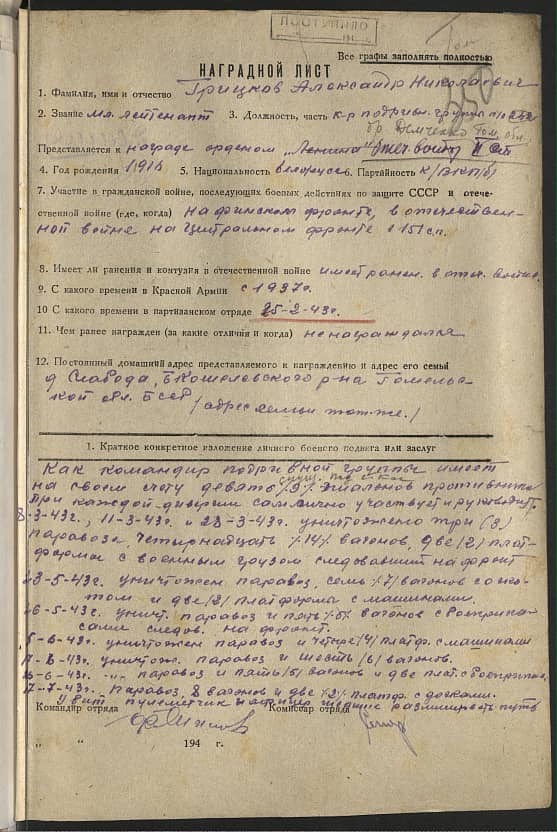 ПОСТУПИЛО
Все графы заполнять полностью
НАГРАДНОЙ ЛИСТ
1. Фамилия, имя и отчество Грицков Александр Николаевич
2. Звание мл. лейтенант 3. Должность, часть к-р подривн. группы
Представляется к награде орденом „Ленина" Отеч. войны II ст.
4. Год рождения 1916 5. Национальность белорусс 6. Партийность к/ВКП/б/
7. Участие в гражданской войне, последующих боевых действиях по защите СССР и отече-
ственной войне (где, когда) на финском фронте, в отечествен-
ной войне на Центральном фронте в 151 сп.
8. Имеет ли ранения и контузии в отечественной войне имеет ранен. в отеч.
9. С какого времени в Красной Армии с 1937 г.
10 С какого времени в партизанском отряде 25-2-43г.
11. Чем ранее награжден (за какие отличия и когда) не награждался
12. Постоянный домашний адрес представляемого к награждению и адрес его семьи
д. Слобода, Б Кошелевского р-на Гомельс-
кой обл. БССР /адрес семьи тот-же./
1. Краткое конкретное изложение личного боевого подвига или заслуг
Как командир подривной группы имеет
на своем счету девять /9/ эшалонов противника
при каждой диверсии сам лично участвует и руководит.
8-3-43г., 11-3-43г. и 28-3-43г. уничтожено три (3)
паравоза, четырнадцать /14/ вагонов, две /2/ плат-
формы с военным грузом следовавший на фронт
3-5-43г. уничтожен паравоз, семь /7/ вагонов со
и две /2/ платформы с машинами.
6-5-43г. уничт. паравоз и пять /5/ вагонов с боеприпа-
сами следов. на фронт.
5-6-43г. уничтожен паравоз и четыре /4/ платф. с машинами
уничтож. паравоз и шесть /6/ вагонов.
6-43г. -"- паравоз и пять /5/ вагонов и две плат. с боеприпас.
7-7-43г. Паравоз, 8 вагонов и две /2/ платф. с досками.
Убит пулеметчик и офицер шедшие разминировать путь
Командир отряда Комиссар отряда
„ " 194 г.